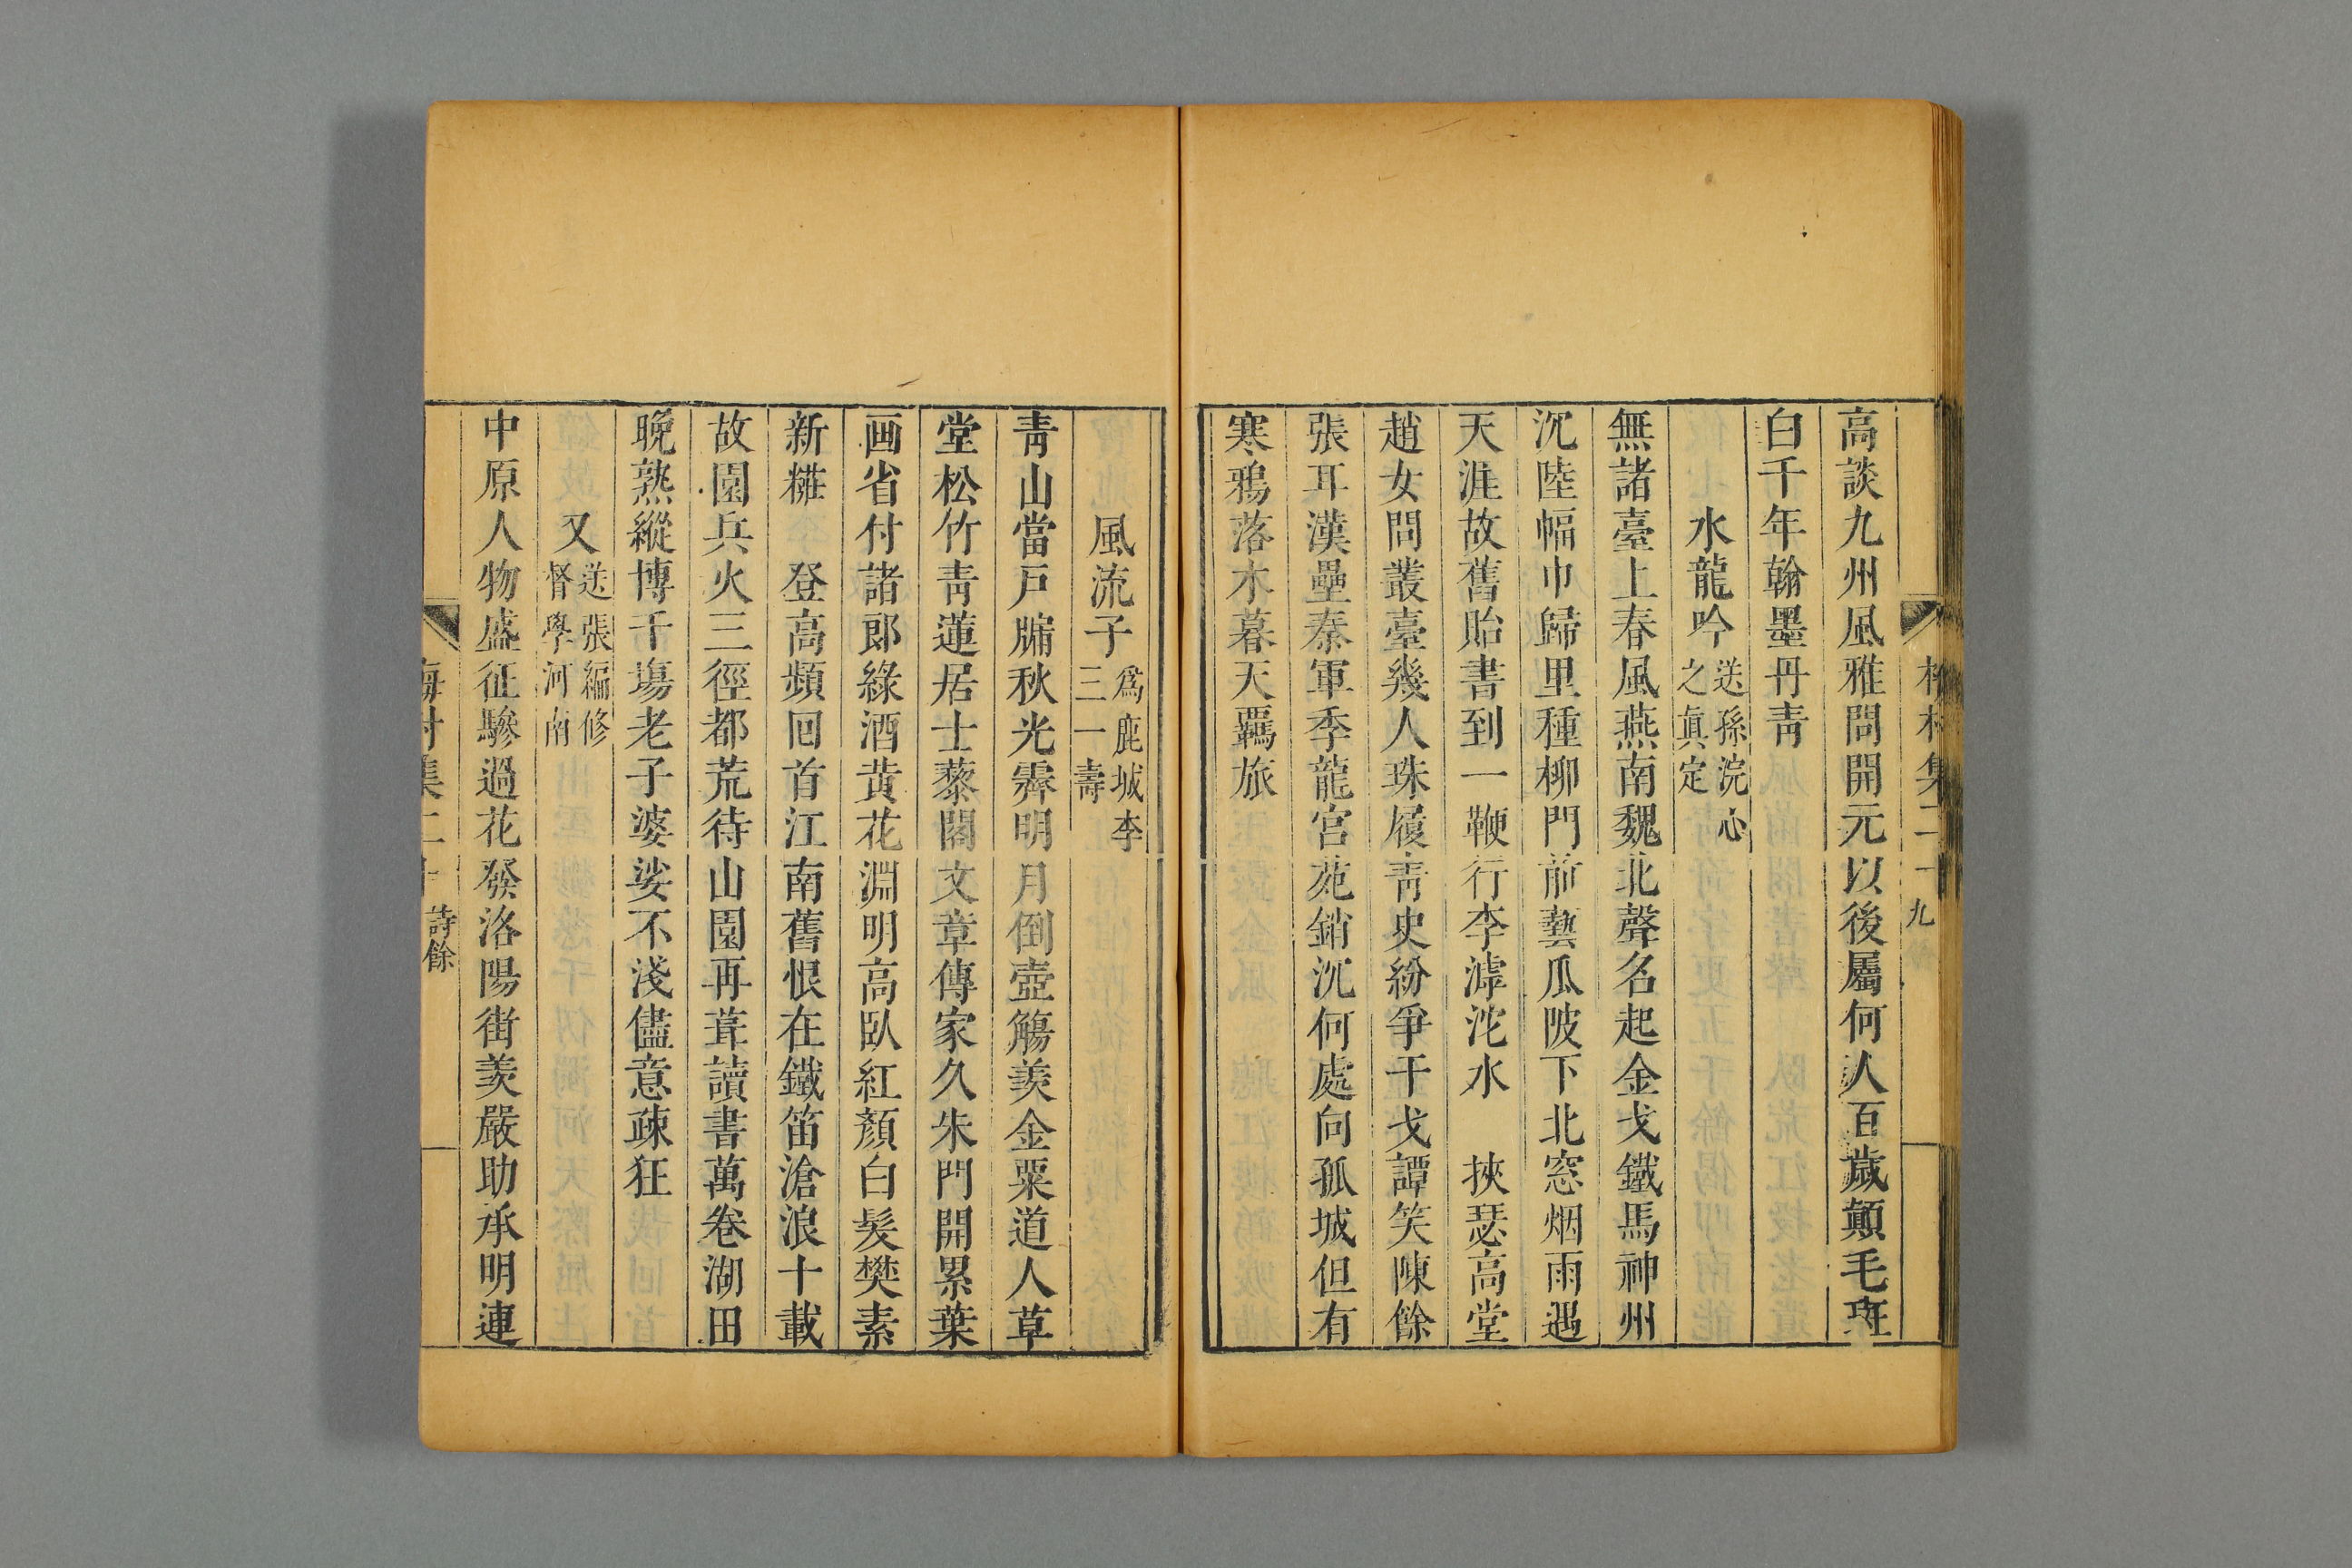 高談九州風雅問開元以後屬何人百歲顛毛斑
白千年翰墨丹靑
水龍吟送孫浣心之眞定
無諸臺上春風燕南魏北聲名起金戈鐵馬神州
沉陸幅巾歸里種柳門前藝瓜陂下北窓烟雨遇
天涯故舊貽書到一鞭行李滹沱水　挾瑟高堂
趙女問叢臺幾人珠履靑史紛爭干戈譚笑陳餘
張耳漢壘秦軍季龍宮苑銷沉何處向孤城但有
寒鴉落木暮天羈旅
風流子爲鹿城李三一壽
靑山當戸牖秋光霽明月倒壺觴羨金粟道人草
堂松竹靑蓮居士藜閣文章傳家久朱門開累葉
画省付諸郎綠酒黃花淵明高臥紅顏白髮樊素
新糚　登高頻回首江南舊恨在鐵笛滄浪十載
故園兵火三徑都荒待山園再葺讀書萬卷湖田
晚熟縱博千塲老子婆娑不淺儘意疎狂
又送張編修督學河南
中原人物盛征驂過花發洛陽街羨嚴助承明連
詩餘
九